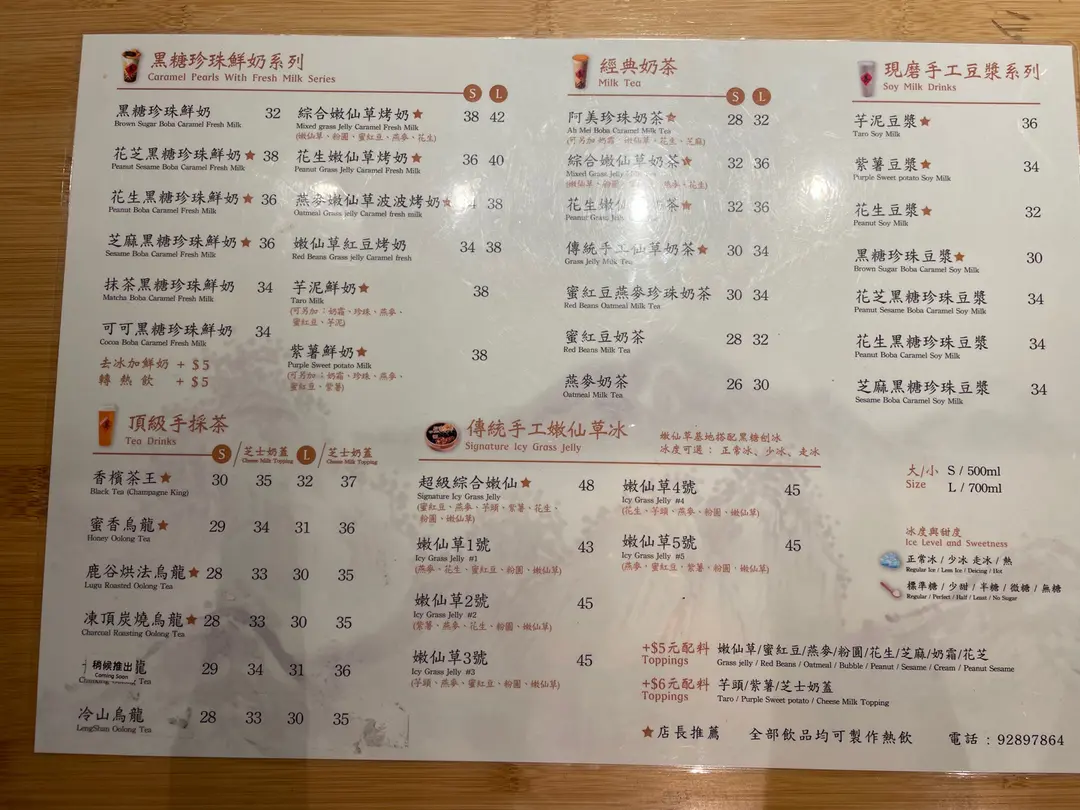 黑糖珍珠鮮奶系列
Caramel Pearls With Fresh Milk Series
S L
黑糖珍珠鮮奶 32
Brown Sugar Boba Caramel Fresh Milk
花芝黑糖珍珠鮮奶★ 38
Peanut Sesame Boba Caramel Fresh Milk
花生黑糖珍珠鮮奶★ 36
Peanut Boba Caramel Fresh Milk
芝麻黑糖珍珠鮮奶★ 36
Sesame Boba Caramel Fresh Milk
抹茶黑糖珍珠鮮奶 34
Matcha Boba Caramel Fresh Milk
可可黑糖珍珠鮮奶 34
Cocoa Boba Caramel Fresh Milk
去冰加鮮奶 + $5
轉熱飲 + $5
綜合嫩仙草烤奶★ 38 42
Mixed grass Jelly Caramel Fresh Milk
(嫩仙草、粉圓、蜜紅豆、燕麥、花生)
花生嫩仙草烤奶★ 36 40
Peanut Grass Jelly Caramel Fresh Milk
燕麥嫩仙草波波烤奶★ 38
Oatmeal Grass jelly Caramel Fresh milk
嫩仙草紅豆烤奶 34 38
Red Beans Grass jelly Caramel fresh
芋泥鮮奶★ 38
Taro Milk
(可另加：奶霜、珍珠、燕麥、
蜜紅豆、芋泥)
紫薯鮮奶★ 38
Purple Sweet potato Milk
(可另加：奶霜、珍珠、燕麥、
蜜紅豆、紫薯)
經典奶茶
Milk Tea
S L
阿美珍珠奶茶★ 28 32
Ah Mei Boba Caramel Milk Tea
(可另加 奶霜、嫩仙草、花生、芝麻)
綜合嫩仙草奶茶★ 32 36
Mixed Grass Jelly Tea
(嫩仙草、粉圓 燕麥、花生)
花生嫩仙草奶茶★ 32 36
Peanut Grass Jelly
傳統手工仙草奶茶★ 30 34
Grass Jelly Milk Tea
蜜紅豆燕麥珍珠奶茶 30 34
Red Beans Oatmeal Milk Tea
蜜紅豆奶茶 28 32
Red Beans Milk Tea
燕麥奶茶 26 30
Oatmeal Milk Tea
現磨手工豆漿系列
Soy Milk Drinks
芋泥豆漿★ 36
Taro Soy Milk
紫薯豆漿★ 34
Purple Sweet potato Soy Milk
花生豆漿★ 32
Peanut Soy Milk
黑糖珍珠豆漿★ 30
Brown Sugar Boba Caramel Soy Milk
花芝黑糖珍珠豆漿 34
Peanut Sesame Boba Caramel Soy Milk
花生黑糖珍珠豆漿 34
Peanut Boba Caramel Soy Milk
芝麻黑糖珍珠豆漿 34
Sesame Boba Caramel Soy Milk
頂級手採茶
Tea Drinks
S / 芝士奶蓋 L / 芝士奶蓋
Cheese Milk Topping Cheese Milk Topping
香檳茶王★ 30 35 32 37
Black Tea (Champagne King)
蜜香烏龍★ 29 34 31 36
Honey Oolong Tea
鹿谷烘法烏龍★ 28 33 30 35
Lugu Roasted Oolong Tea
凍頂炭燒烏龍★ 28 33 30 35
Charcoal Roasting Oolong Tea
稍候推出 龍 29 34 31 36
Coming Soon Tea
冷山烏龍 28 33 30 35
LengShan Oolong Tea
傳統手工嫩仙草冰
Signature Icy Grass Jelly
嫩仙草基地搭配黑糖刨冰
冰度可選：正常冰、少冰、走冰
超級綜合嫩仙★ 48
Signature Icy Grass Jelly
(蜜紅豆、燕麥、芋頭、紫薯、花生、
粉圓、嫩仙草)
嫩仙草1號 43
Icy Grass Jelly #1
(燕麥、花生、蜜紅豆、粉圓、嫩仙草)
嫩仙草2號 45
Icy Grass Jelly #2
(紫薯、燕麥、花生、粉圓、嫩仙草)
嫩仙草3號 45
Icy Grass Jelly #3
(芋頭、燕麥、蜜紅豆、粉圓、嫩仙草)
嫩仙草4號 45
Icy Grass Jelly #4
(花生、芋頭、燕麥、粉圓、嫩仙草)
嫩仙草5號 45
Icy Grass Jelly #5
(燕麥、蜜紅豆、紫薯、粉圓、嫩仙草)
大/小 S / 500ml
Size L / 700ml
冰度與甜度
Ice Level and Sweetness
正常冰 / 少冰 走冰 / 熱
Regular Ice / Less Ice / Deicing / Hot
標準糖 / 少甜 / 半糖 / 微糖 / 無糖
Regular / Perfect / Half / Least / No Sugar
+$5元配料 嫩仙草/蜜紅豆/燕麥/粉圓/花生/芝麻/奶霜/花芝
Toppings Grass jelly / Red Beans / Oatmeal / Bubble / Peanut / Sesame / Cream / Peanut Sesame
+$6元配料 芋頭/紫薯/芝士奶蓋
Toppings Taro / Purple Sweet potato / Cheese Milk Topping
★店長推薦 全部飲品均可製作熱飲 電話：92897864